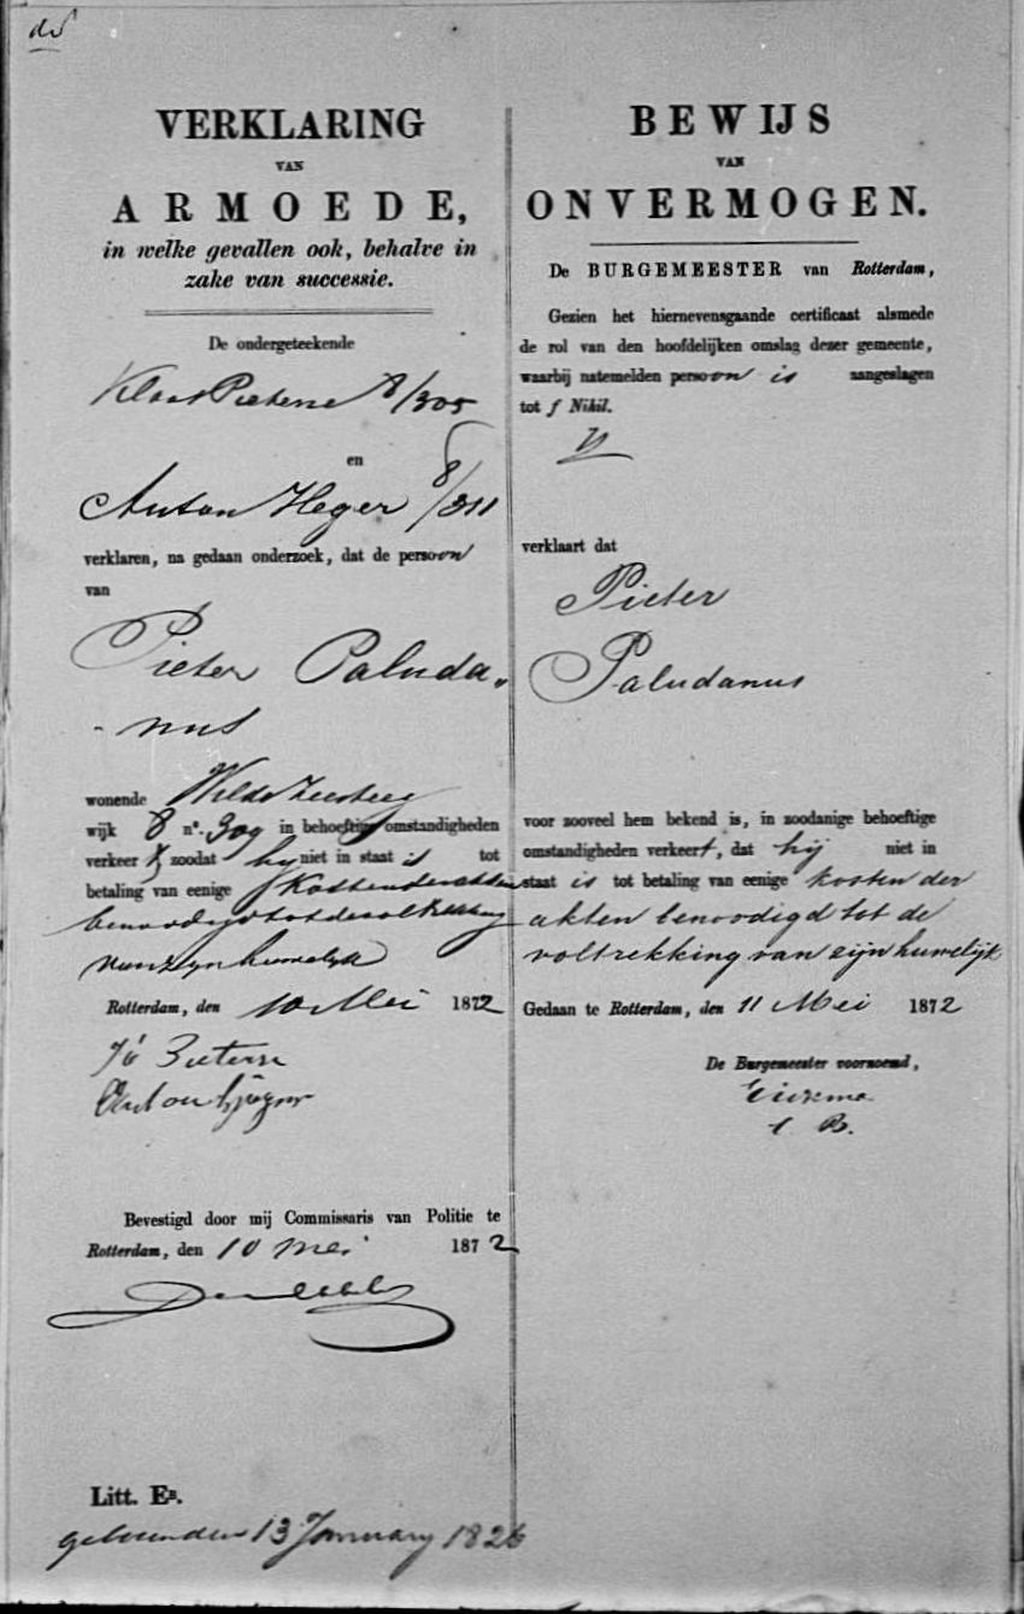 VERKLARING
VAN
ARMOEDE,
in welke gevallen ook, behalve in
zake van successie.
De ondergeteekende
Klaas Pieterse 8/305
en
Anton Heger 8/311
verklaren, na gedaan onderzoek, dat de persoon
van
Pieter Paluda„
- nus
wonende Wilde Zeesteeg
wijk 8 no. 309 in behoeftige omstandigheden
verkeert, zoodat hy niet in staat is tot
betaling van eenige Kosten der akten
benoodigd tot de voltrekking
van zyn huwelyk
Rotterdam, den 10 Mei 1872
Bevestigd door mij Commissaris van Politie te
Rotterdam, den 10 mei 1872
Litt. EB.
13 January 1826
BEWIJS
VAN
ONVERMOGEN.
De BURGEMEESTER van Rotterdam,
Gezien het hiernevensgaande certificaat alsmede
de rol van den hoofdelijken omslag dezer gemeente,
waarbij natemelden persoon is aangeslagen
tot f Nihil.
verklaart dat
Pieter
Paludanus
voor zooveel hem bekend is, in zoodanige behoeftige
omstandigheden verkeert, dat hij niet in
staat is tot betaling van eenige kosten der
akten benoodigd tot de
voltrekking van zijn huwelijk
Gedaan te Rotterdam, den 11 Mei 1872
De Burgemeester voornoemd,